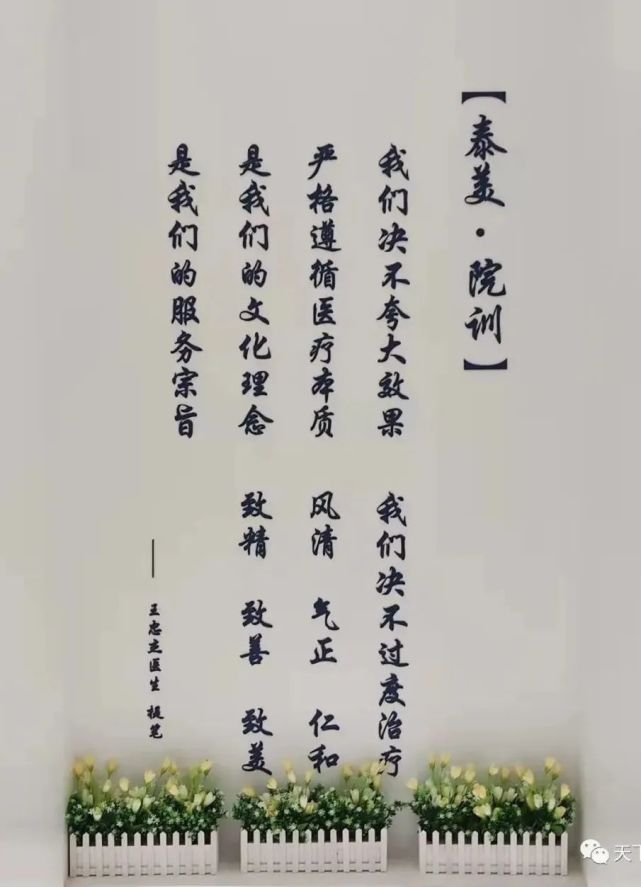 【泰美·院训】
我们决不夸大效果 我们决不过度治疗
严格遵循医疗本质 风清 气正 仁和
是我们的文化理念 致精 致善 致美
是我们的服务宗旨
——王忠志医生 提笔
天下